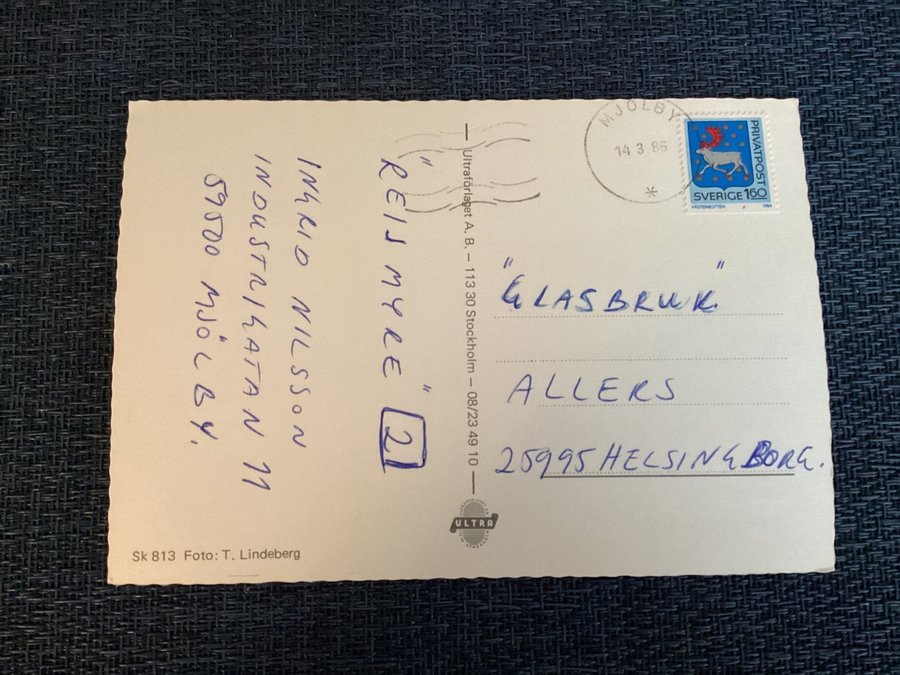 "REISMYRE" 2
INGRID NILSSON
INDUSTRIGATAN 11
59500 MJÖLBY.
Sk 813 Foto: T. Lindeberg
Ultraförlaget A. B. – 113 30 Stockholm – 08/23 49 10
ULTRA
MJÖLBY
14 3 86
*
PRIVATPOST
SVERIGE 160
VÄSTERBOTTEN 1984
"GLASBRUK"
ALLERS
25995 HELSINGBORG.